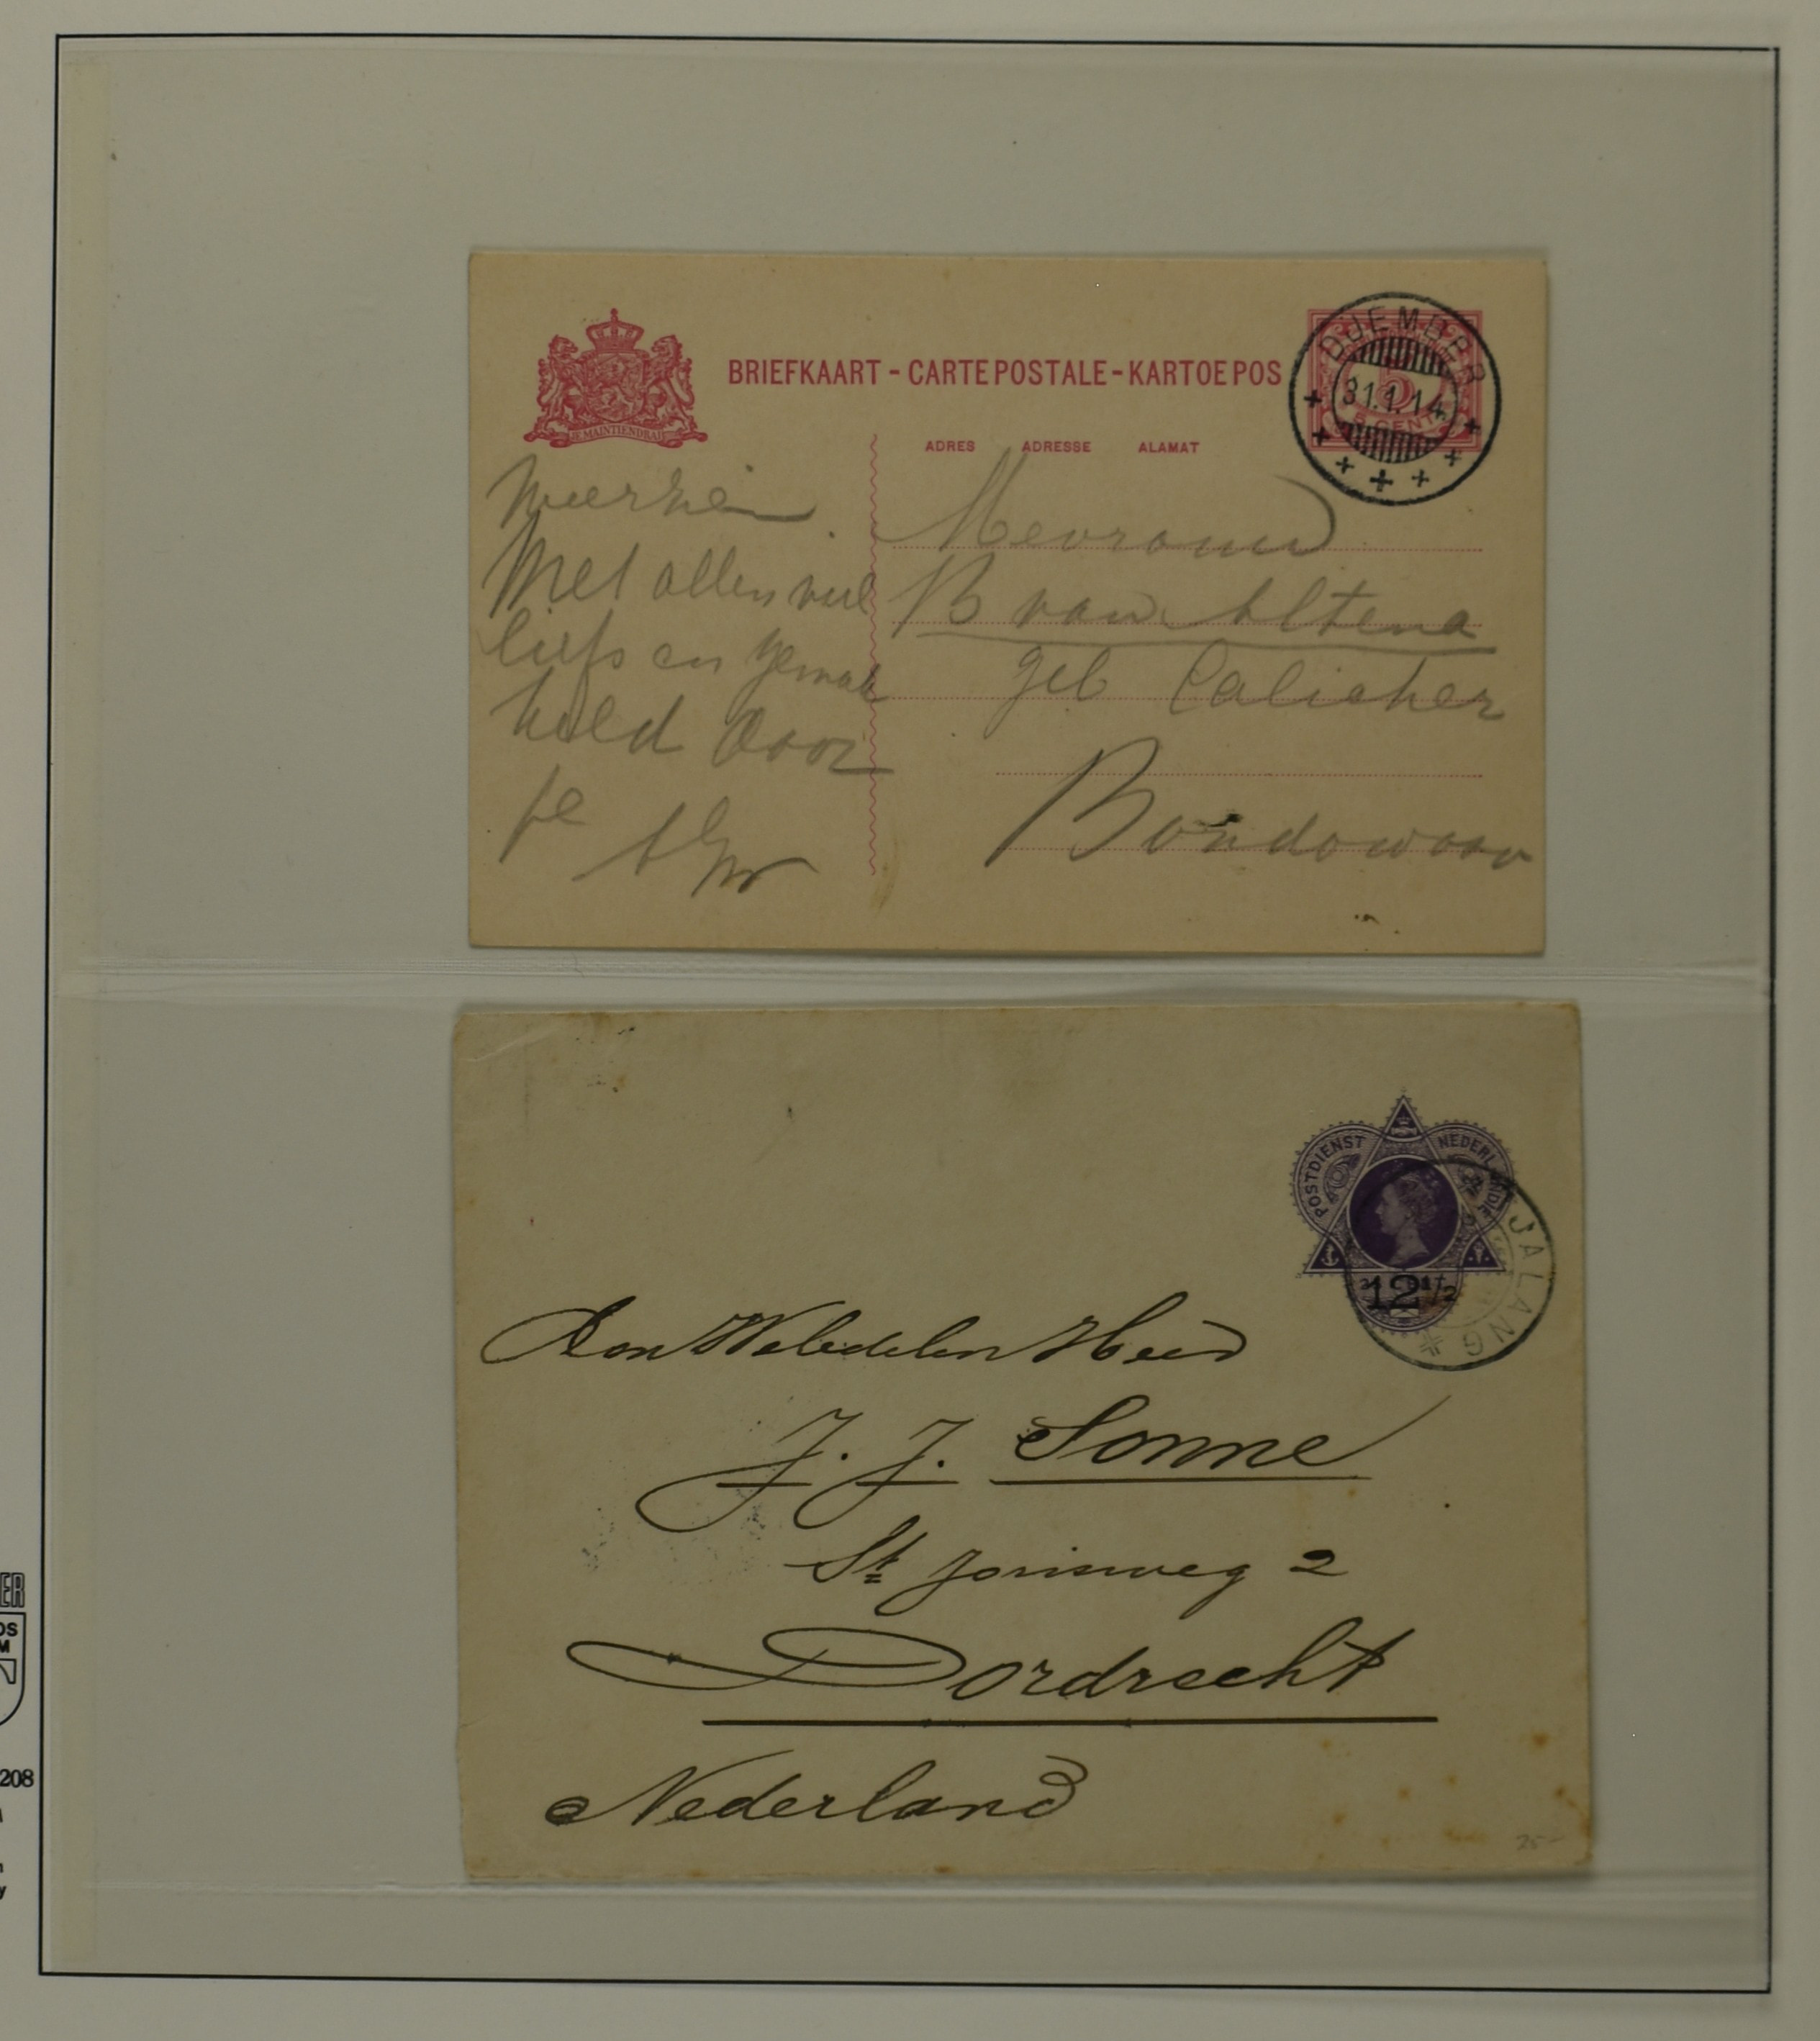 BRIEFKAART - CARTE POSTALE - KARTOE POS
JE MAINTIENDRAI
DJEMBER
31.1.14
5
5 CENT
ADRES ADRESSE ALAMAT
weerzien.
Met allen veel
liefs en
held door
je
Mevrouw
B van Altena
geb Calicher
Bondowoso
POSTDIENST NEDERL. INDIE
12 1/2
JALANG
Aan WelEdelen Heer
J. J. Sonne
St Jorisweg 2
Dordrecht
Nederland
25-
ER
OS
M
208